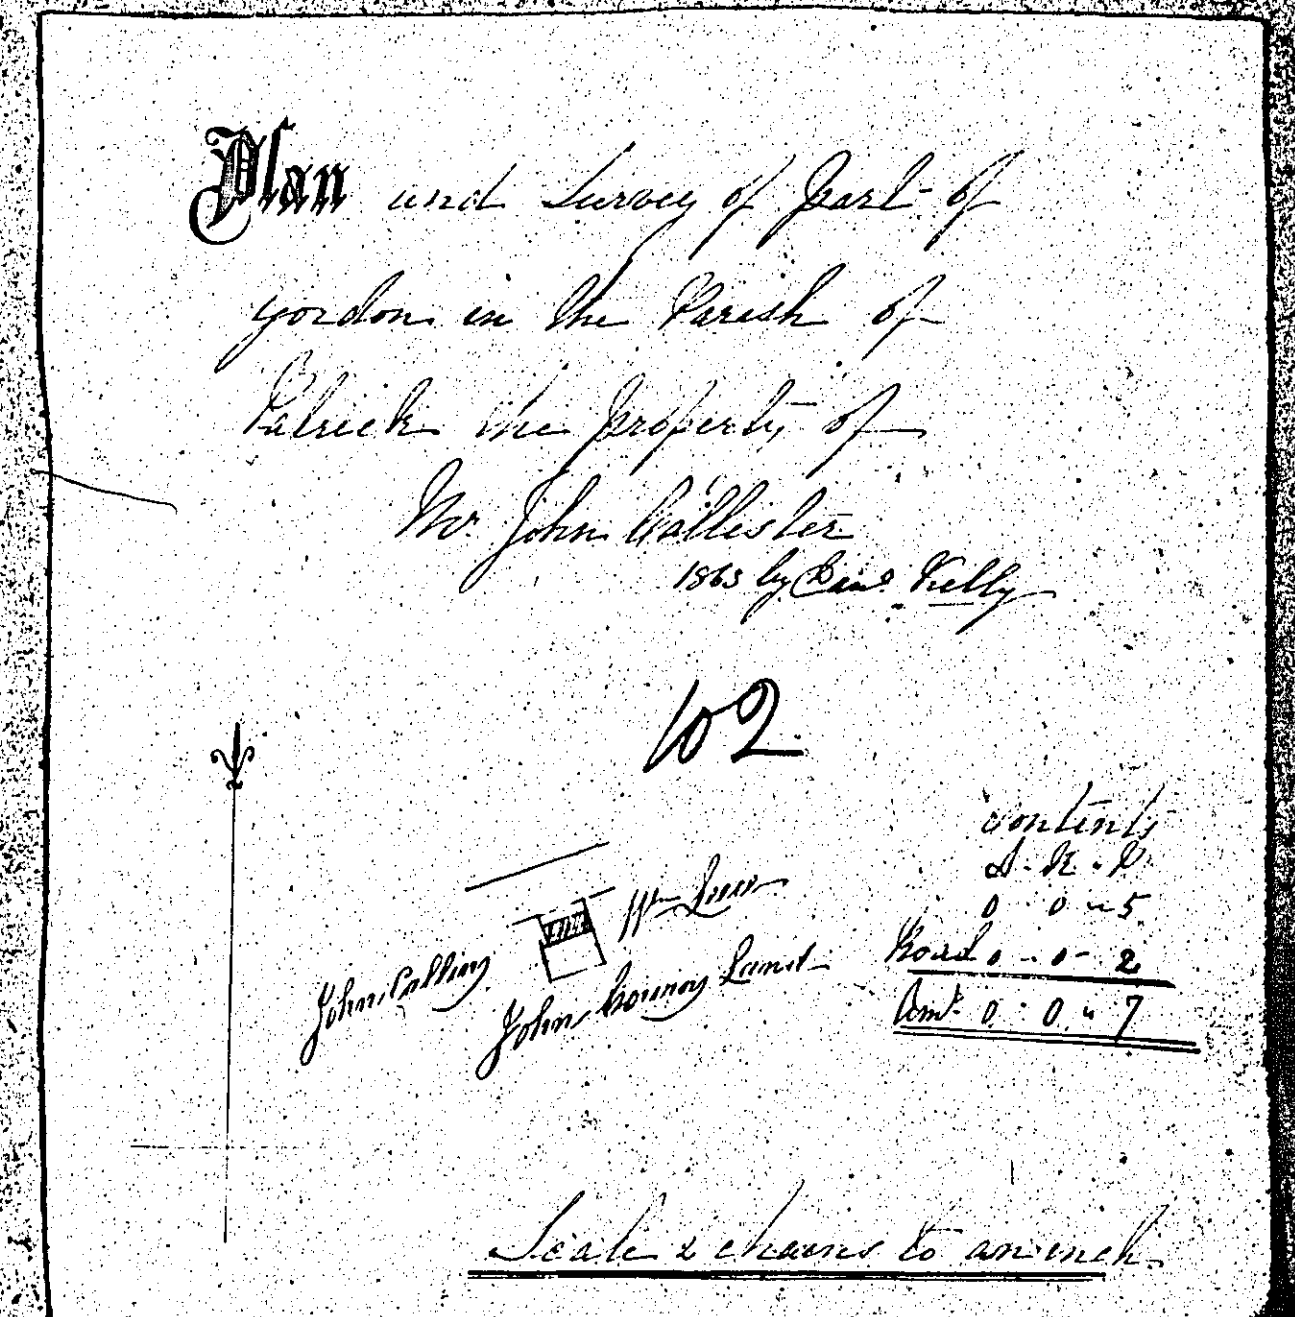 Plan and Survey of Part of
Gordon in the Parish of
Patrick the Property of
Mr. John Callister
1863 by Danl. Kelly
102
Contents
A - R - P
0 0 " 5
Road 0 - 0 - 2
Amt. 0 : 0 " 7
Wm
John
John Land
Scale 2 chains to an inch